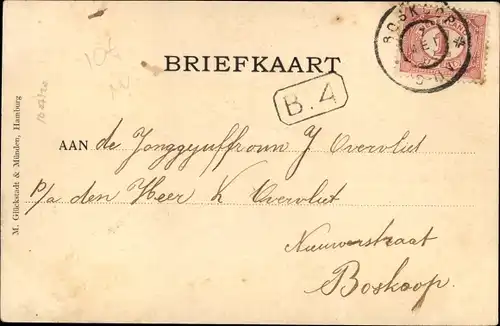 BOSKOOP
BRIEFKAART
B.4
AAN de Jonggejuffrouw J Overvliet
p/a den Heer K Overvliet
Nieuwerstraat
Boskoop.
M. Glückstadt & Münden, Hamburg